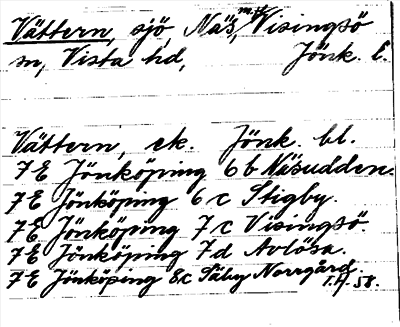 Vättern, sjö Näs, m.fl. Visingsö
sn, Vista hd, Jönk. l.
Vättern, ek. Jönk. bl.
7E Jönköping 6 b Näsudden.
7E Jönköping 6 c Stigby.
7E Jönköping 7 c Visingsö.
7E Jönköping 7d Avlösa.
7E Jönköping 8c Säby Norrgård.